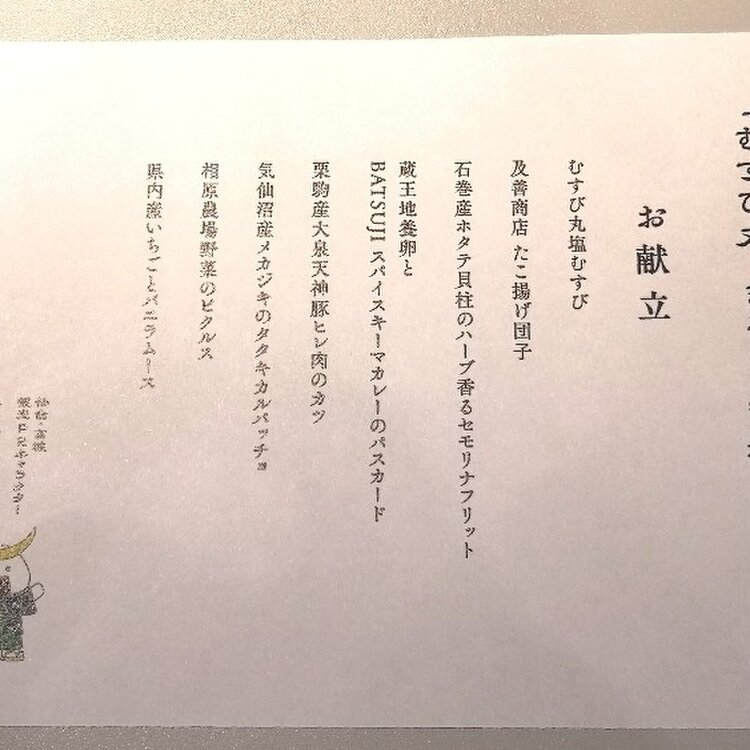 お献立
むすび丸塩むすび
及善商店 たこ揚げ団子
石巻産ホタテ貝柱のハーブ香るセモリナフリット
蔵王地養卵と
BATSUJI スパイスキーマカレーのパスカード
栗駒産大泉天神豚ヒレ肉のカツ
気仙沼産メカジキのタタキカルパッチョ
相原農場野菜のピクルス
県内産いちごとバニラムース
仙台・宮城
観光PRキャラクター